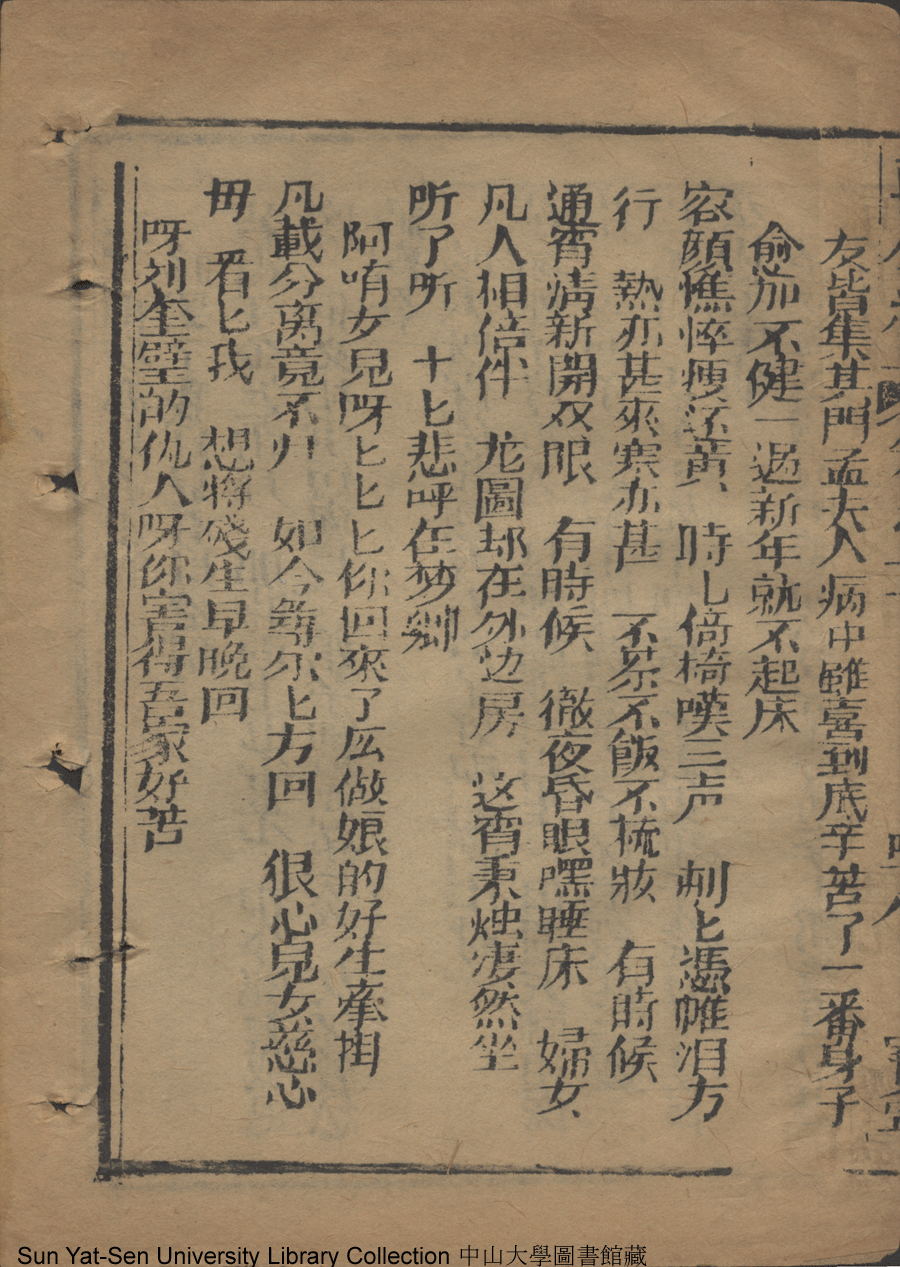 友皆集其門孟夫人病中雖喜到底辛苦了一番身子
俞加不健一過新年就不起床
容顏憔悴瘦还黄 時匕倚椅嘆三声 刺匕憑帷泪方
行 熱亦甚來寒亦甚 不茶不飯不梳妝 有時候
通宵清新開双眼 有時候 徹夜昏眼嘿睡床 婦女
凡人相倍伴 龙圖却在外边房 这宵秉烛凄然坐
听了听 十匕悲呼在梦鄉
阿唷女兒呀匕匕匕你回來了庅做娘的好生牽掛
凡載分离竟不归 如今尋尔匕方回 狠心兒女慈心
毌 看匕我 想將殘生早晚回
呀刘奎壁的仇人呀你害得吾家好苦
Sun Yat-Sen University Library Collection 中山大學圖書館藏